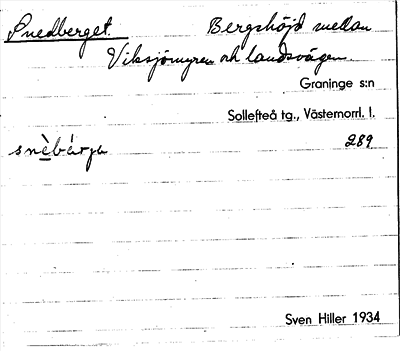 Snedberget. Bergshöjd mellan
Viksjömyren och landsvägen.
Graninge s:n
Sollefteå tg., Västernorrl. l.
snèbárja 289
Sven Hiller 1934